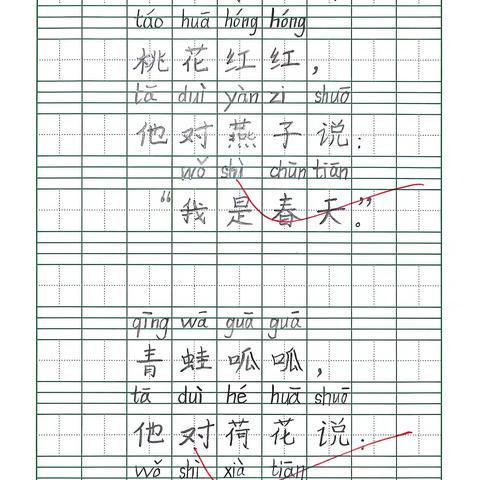 táo huā hóng hóng
桃花红红，
tā duì yàn zi shuō
他对燕子说：
wǒ shì chūn tiān
“我是春天。”
qīng wā guā guā
青蛙呱呱，
tā duì hé huā shuō
他对荷花说：
wǒ shì xià tiān